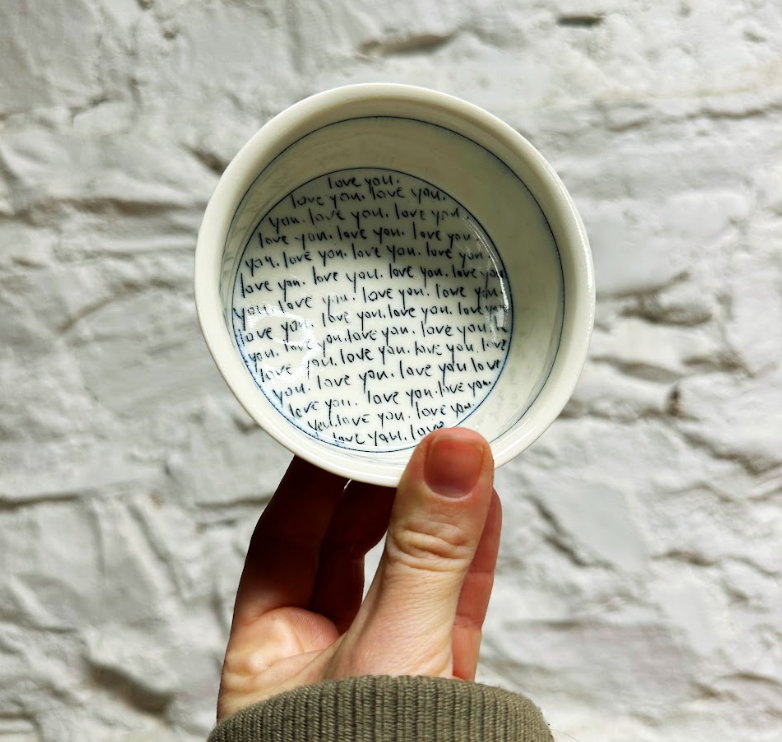 love you.
love you. love you.
you. love you. love you.
love you. love you. love you
you. love you. love you. love you
love you. love you. love you. love you
you love you. love you. love you
love you. love you. love you. love you
you. love you. love you. love you
you. love you. love you. love
love you. love you. love you love
you. love you. love you love
love you. love you. love you.
you. love you. love you.
love you. love